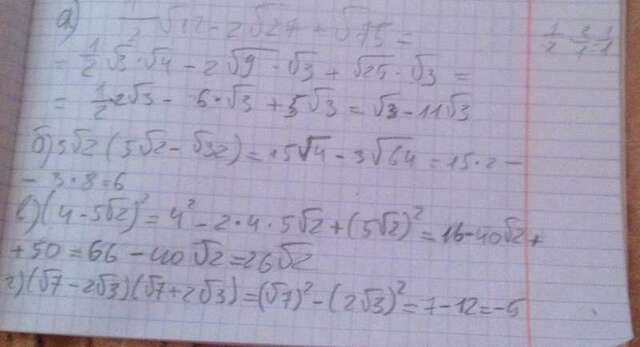 а) 1/2 √12 - 2√27 + √75 =
= 1/2 √3 · √4 - 2√9 · √3 + √25 · √3 =
= 1/2 2√3 - 6 · √3 + 5√3 = √3 - 11√3
б) 3√2 (5√2 - √32) = 15√4 - 3√64 = 15 · 2 -
- 3 · 8 = 6
в) (4 - 5√2)² = 4² - 2 · 4 · 5√2 + (5√2)² = 16 - 40√2 +
+ 50 = 66 - 40√2 = 26√2
г) (√7 - 2√3)(√7 + 2√3) = (√7)² - (2√3)² = 7 - 12 = -5